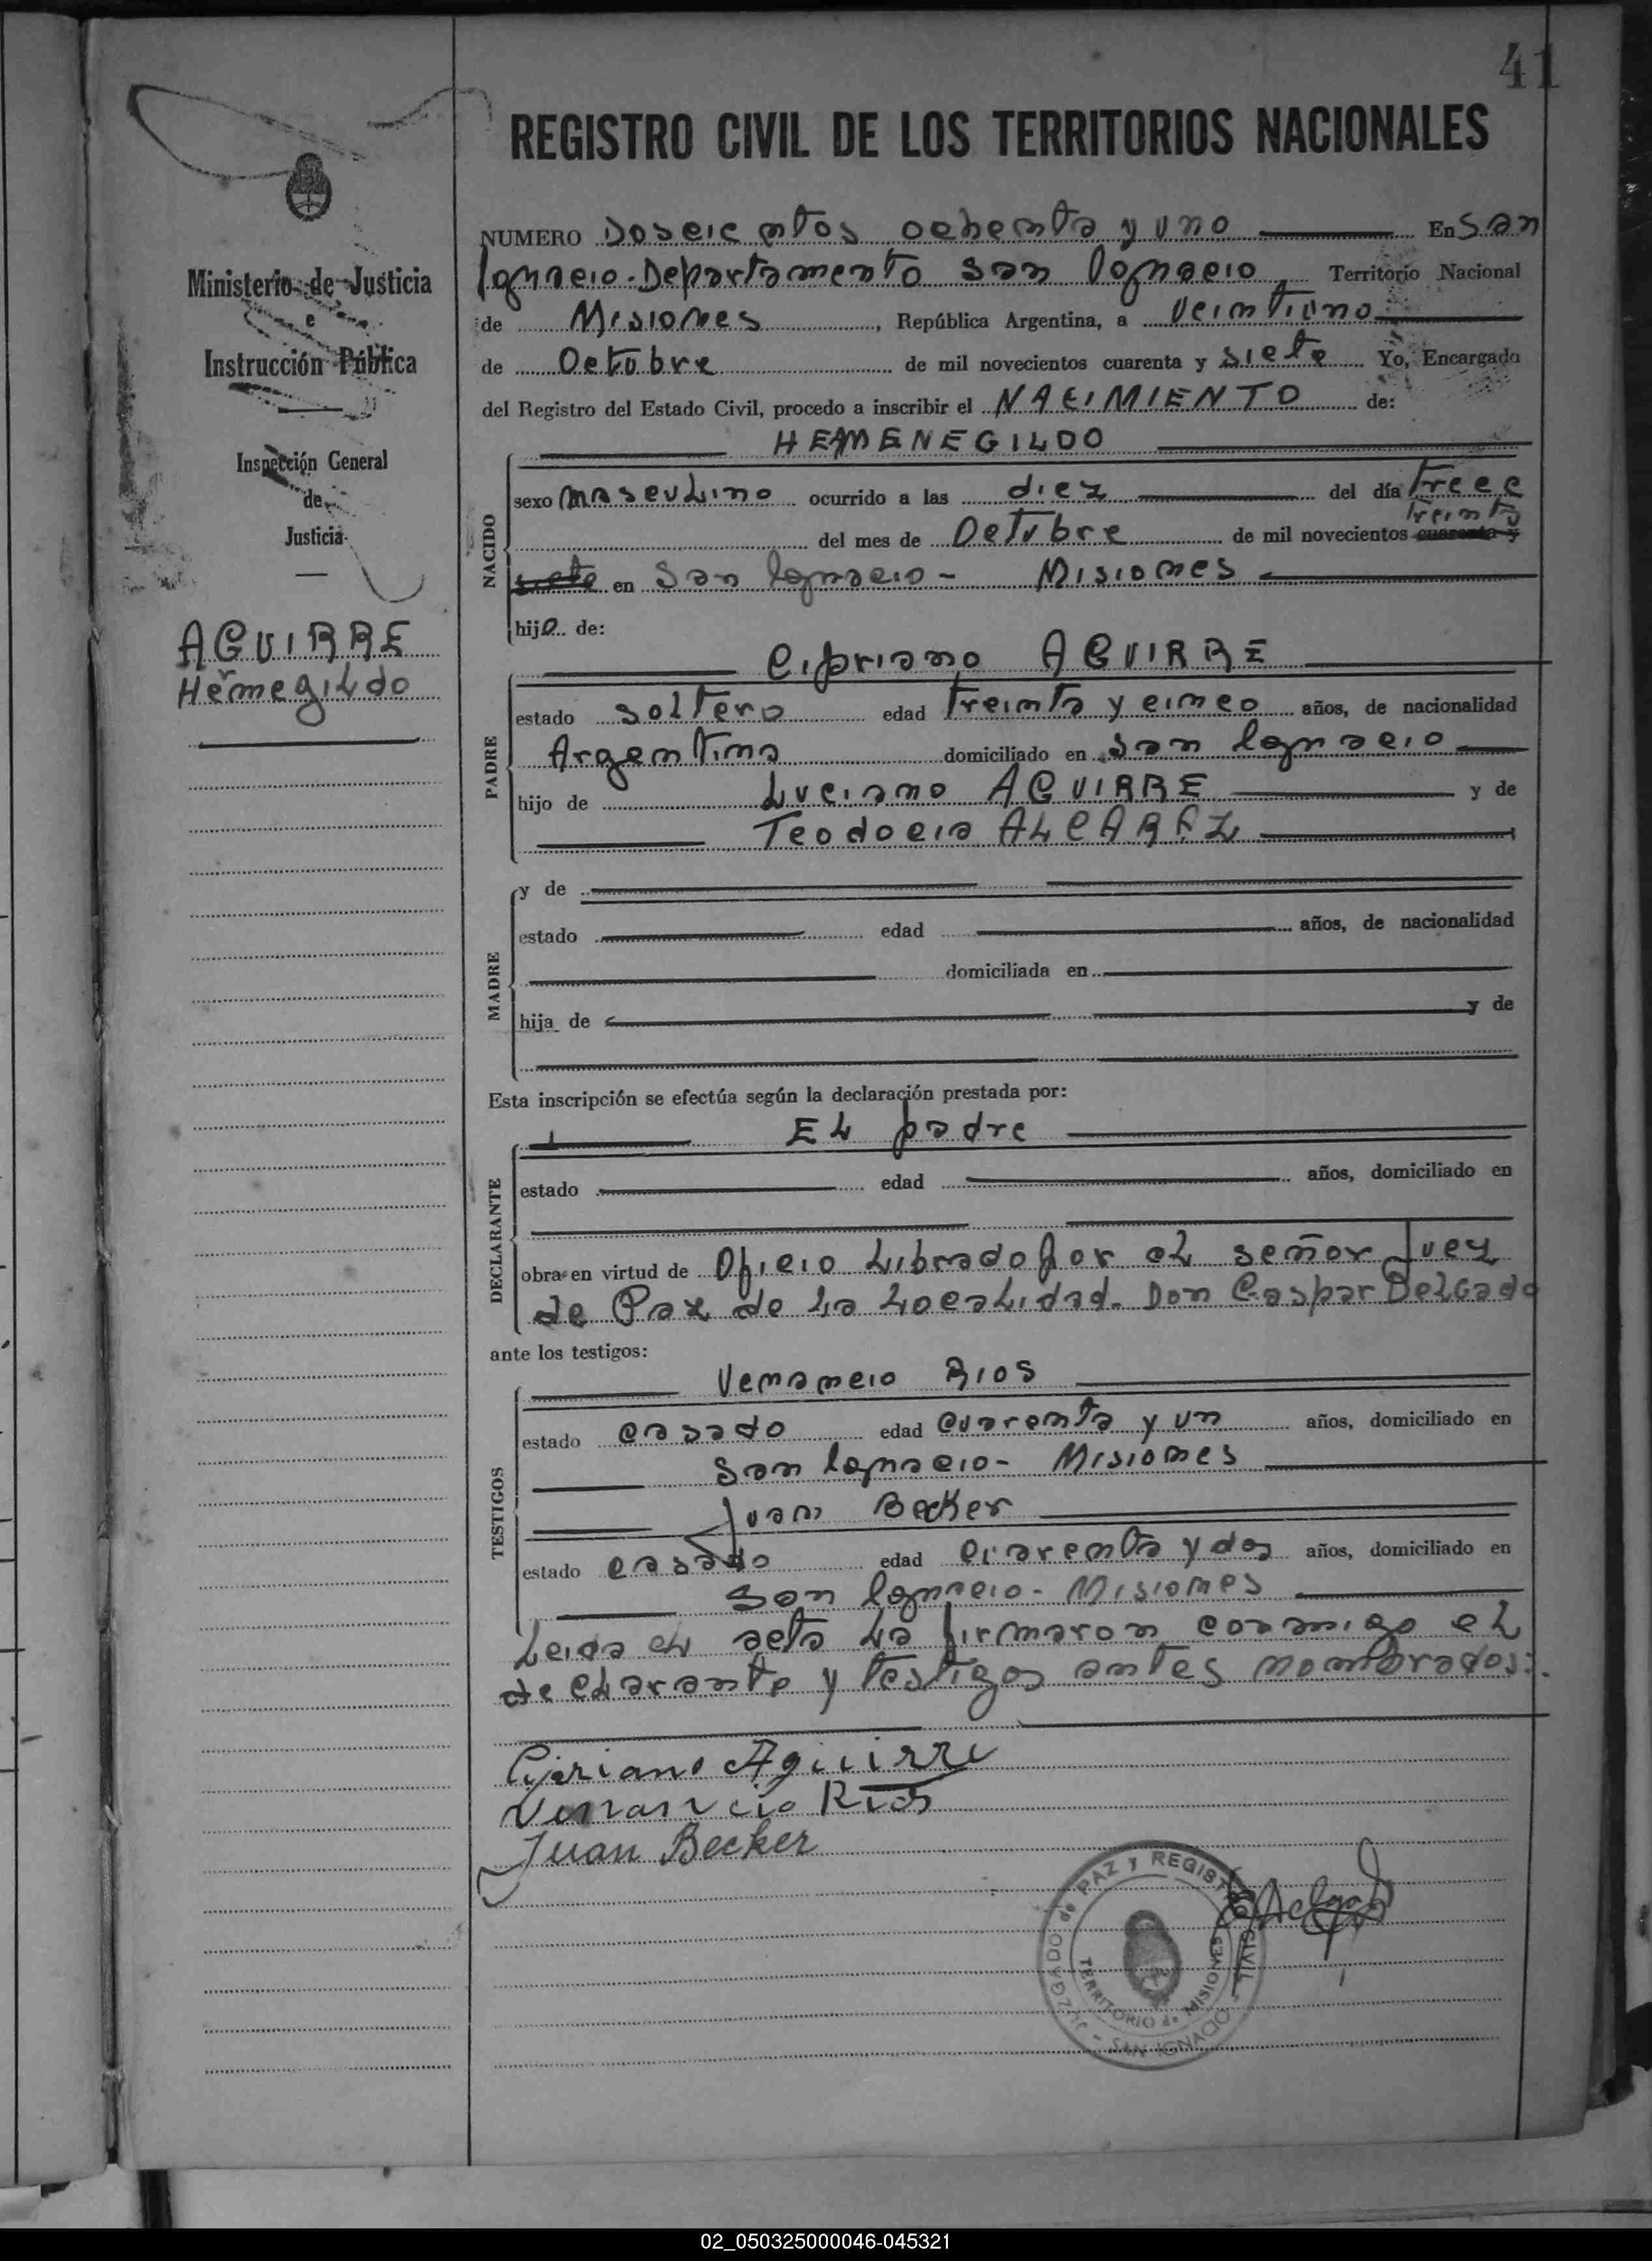 41
REGISTRO CIVIL DE LOS TERRITORIOS NACIONALES
Ministerio de Justicia
e
Instrucción Pública
Inspección General
de
Justicia
AGUIRRE
Hermegildo
NUMERO Doscientos ochenta y uno En San
Ignacio-Departamento San Ignacio, Territorio Nacional
de Misiones, República Argentina, a veintiuno
de Octubre de mil novecientos cuarenta y siete Yo, Encargado
del Registro del Estado Civil, procedo a inscribir el NACIMIENTO de:
HERMENEGILDO
NACIDO
sexo masculino ocurrido a las diez del día trece
treinta
del mes de Octubre de mil novecientos cuarenta y
siete en San Ignacio - Misiones
hijo de:
Cipriano AGUIRRE
PADRE
estado soltero edad treinta y cinco años, de nacionalidad
Argentina domiciliado en San Ignacio
hijo de Luciano AGUIRRE y de
Teodocia ALCARAZ
MADRE
y de
estado edad años, de nacionalidad
domiciliada en
hija de y de
Esta inscripción se efectúa según la declaración prestada por:
El padre
DECLARANTE
estado edad años, domiciliado en
obra en virtud de Oficio Librado por el señor Juez
de Paz de la Localidad. Don Gaspar Delgado
ante los testigos:
TESTIGOS
Venancio RIOS
estado casado edad cuarenta y un años, domiciliado en
San Ignacio- Misiones
Juan Becker
estado casado edad cuarenta y dos años, domiciliado en
San Ignacio - Misiones
Leida el acta la firmaron conmigo el
declarante y testigos antes nombrados:
Cipriano Aguirre
Venancio Rios
Juan Becker
GDelgado
JUZGADO de PAZ y REGISTRO CIVIL
TERRITORIO de MISIONES
- SAN IGNACIO -
02_050325000046-045321